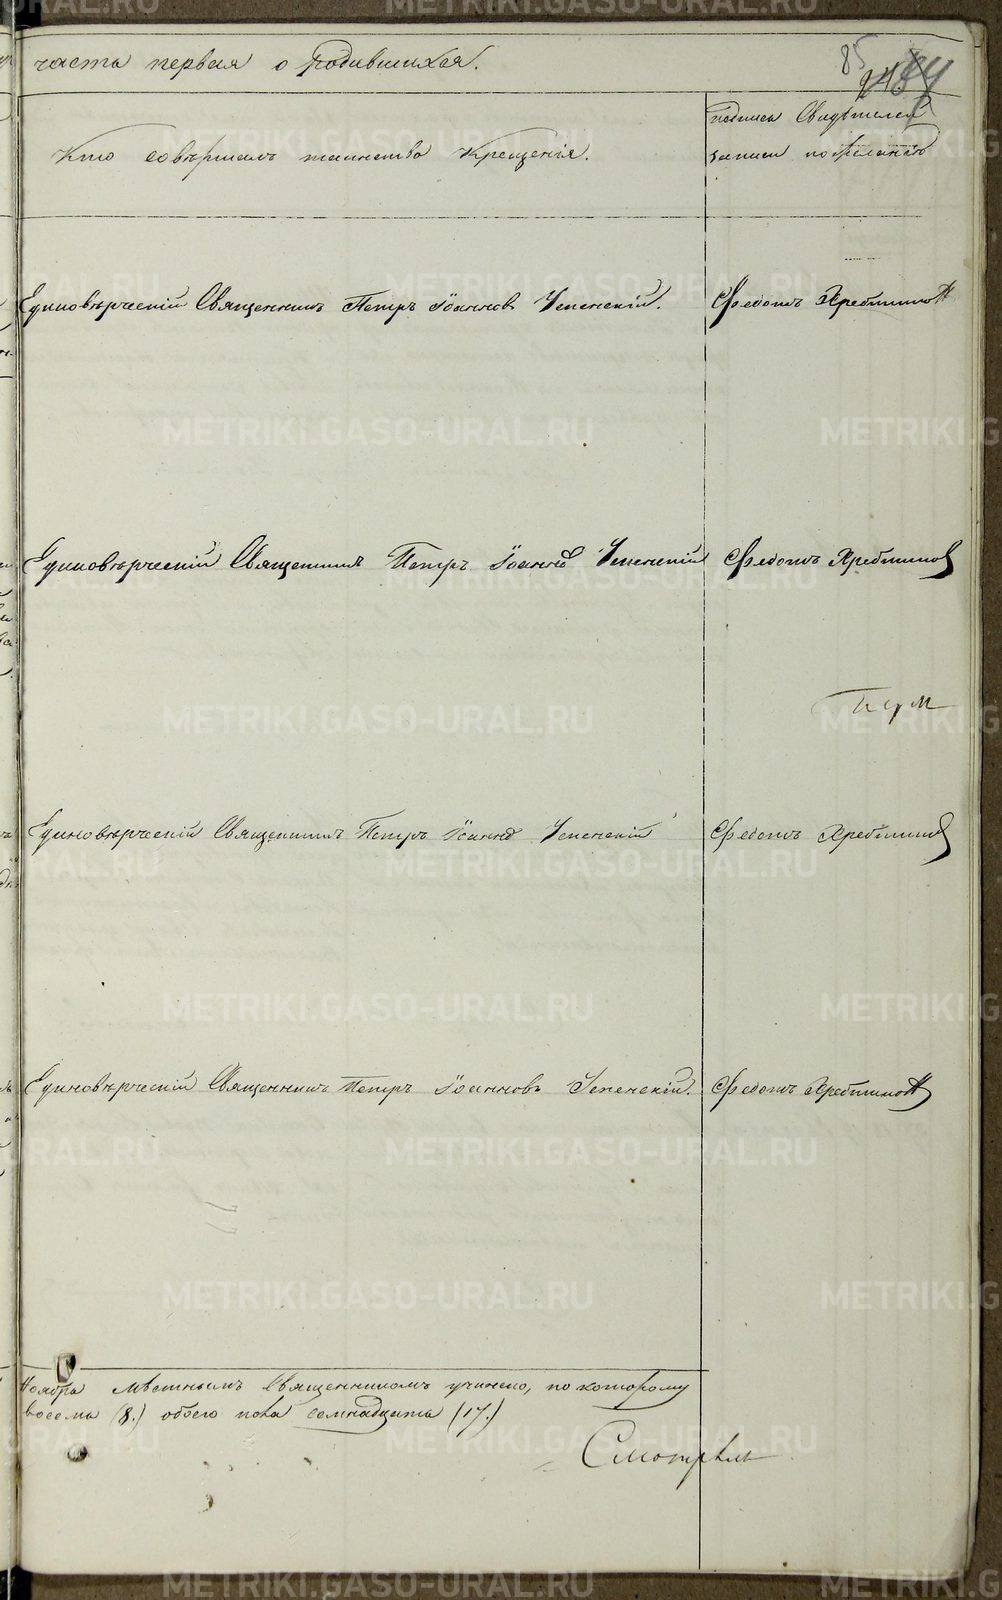 часть первая о родившихся.
85
Кто совершалъ таинство крещенія.
подписи свидѣтелей
записи по желанію
Единовѣрческій Священникъ Петръ Іоанновъ Успенскій.
Федотъ Хребтиковъ
Единовѣрческій Священникъ Петръ Іоаннов Успенскій
Федотъ Хребтиков
Единовѣрческій Священникъ Петръ Іоаннов Успенскій
Федотъ Хребтиков
Единовѣрческій Священникъ Петръ Іоанновъ Успенскій.
Федотъ Хребтиковъ
Ноября мѣстнымъ Священникомъ учинено, по которому
восемь (8.) обоего пола семнадцать (17.)
Смотрѣлъ
METRIKI.GASO-URAL.RU